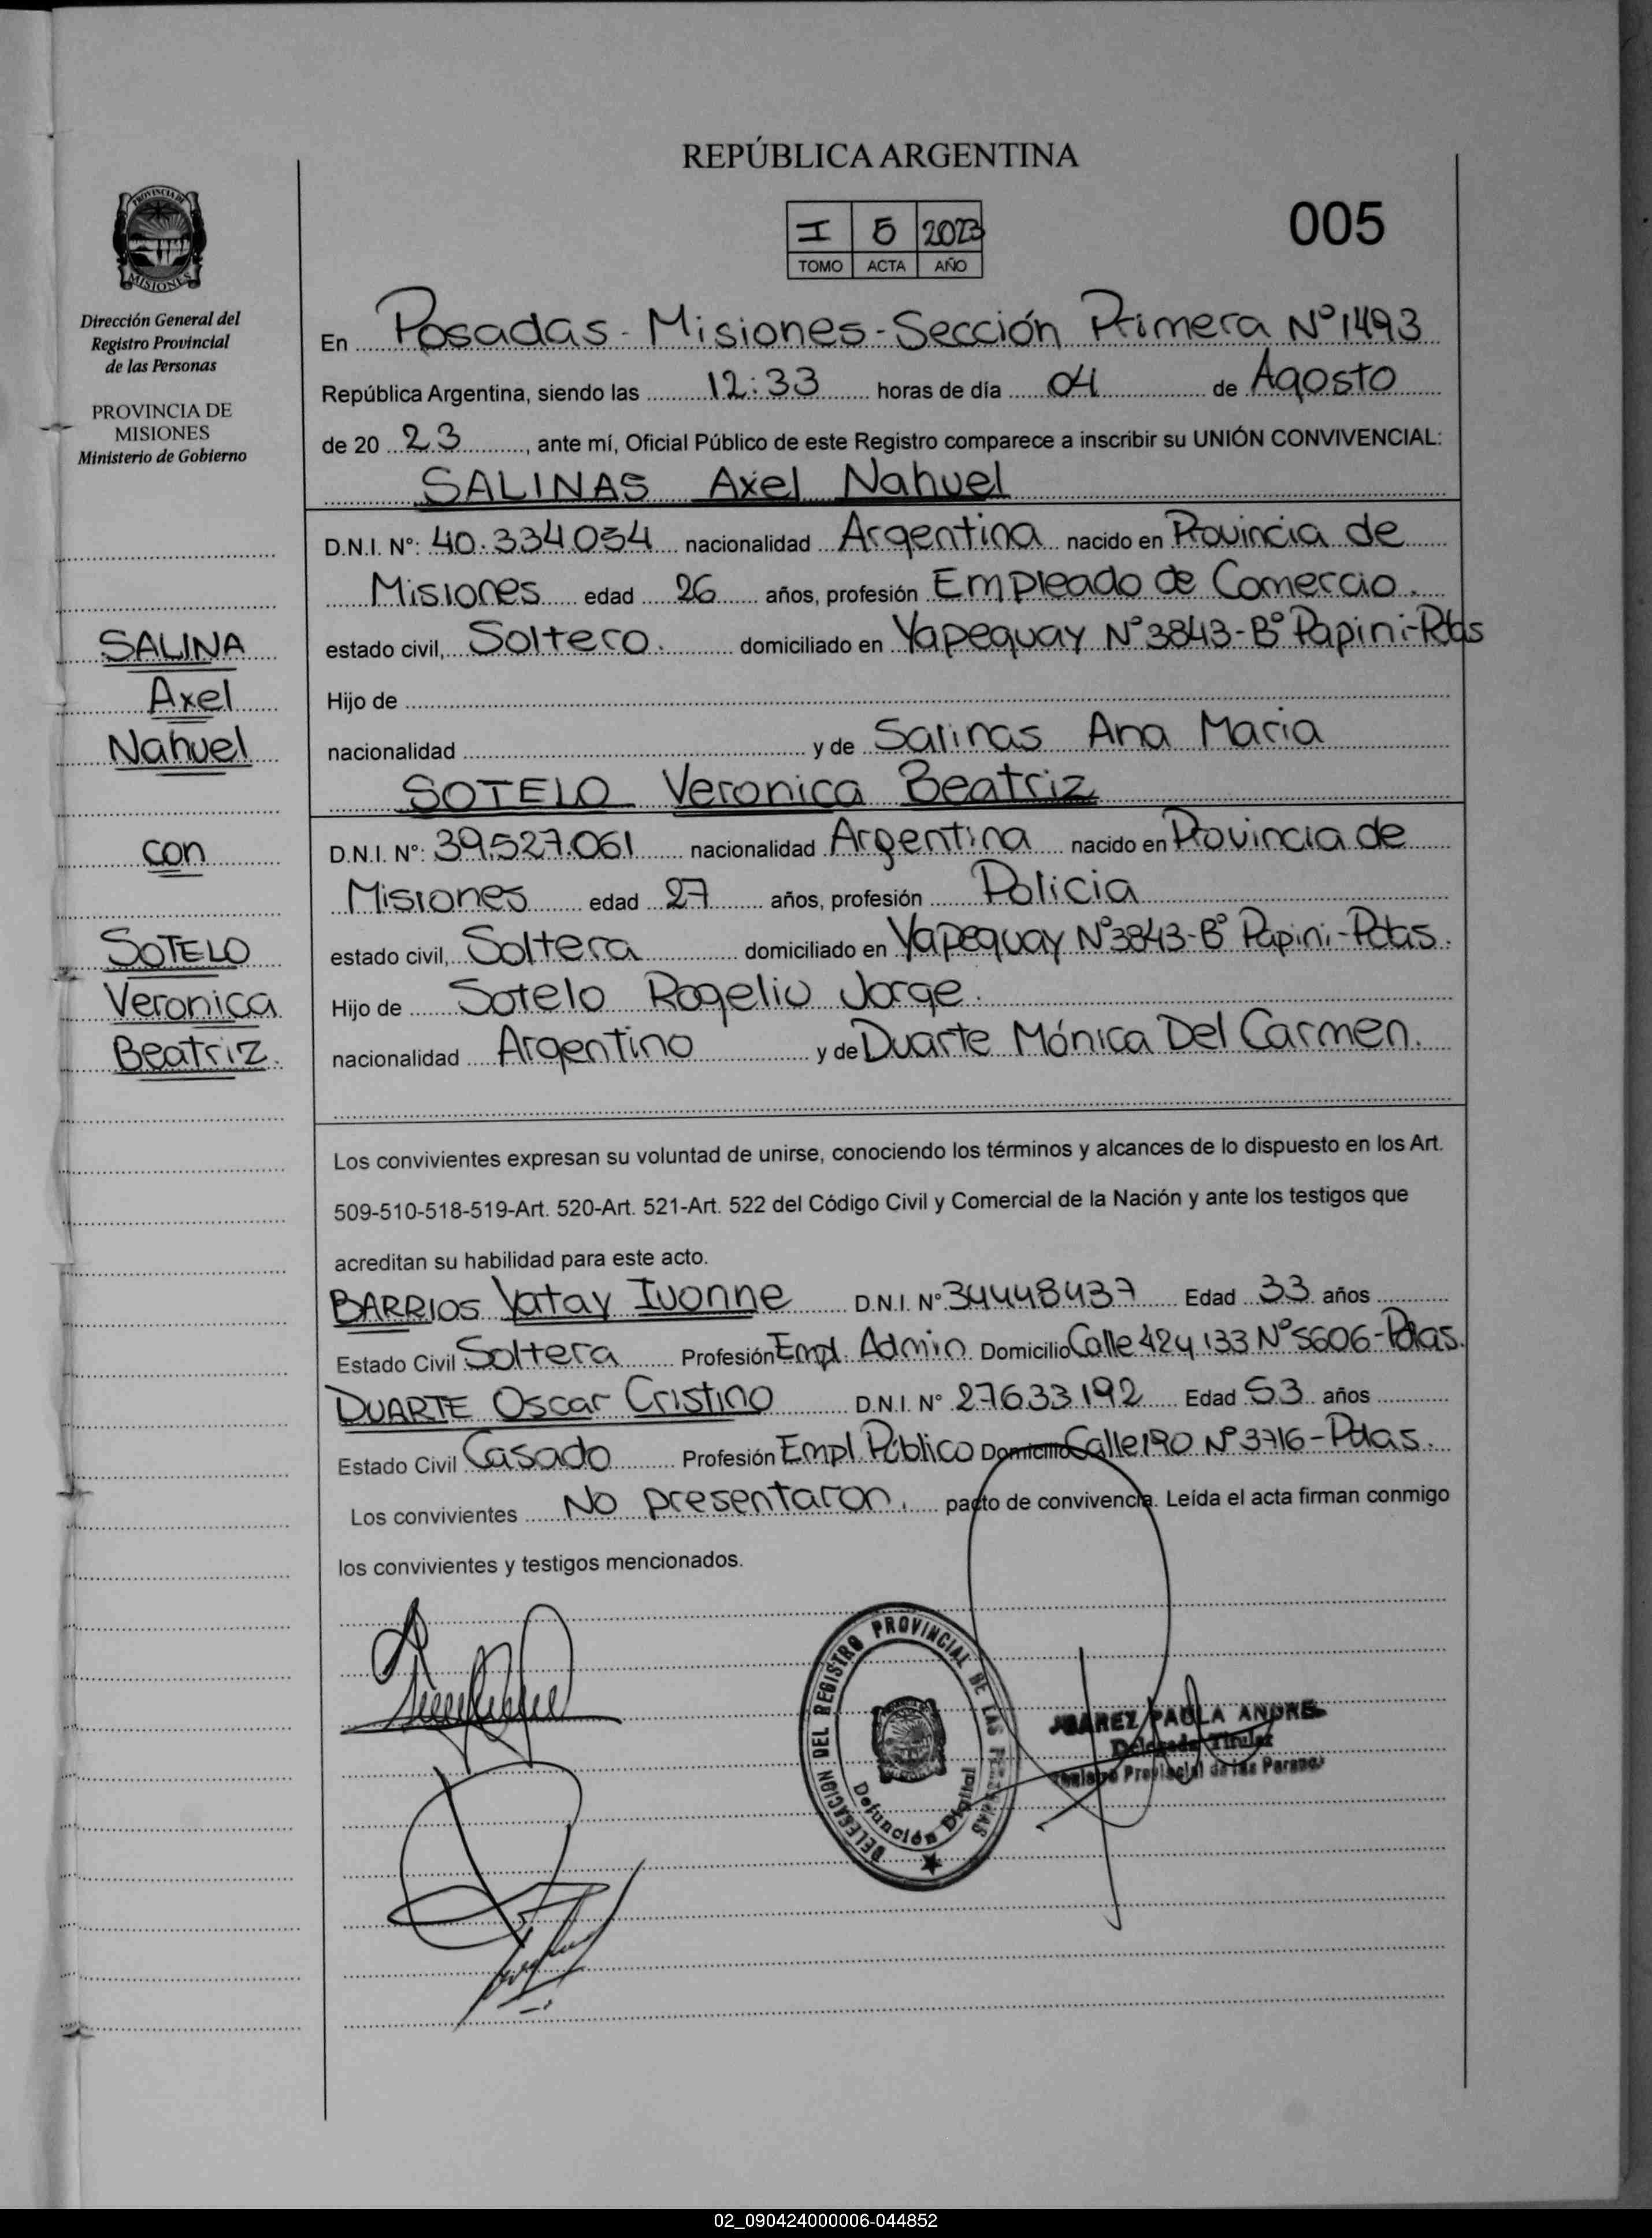 REPÚBLICA ARGENTINA
I 5 2023
TOMO ACTA AÑO
005
PROVINCIA DE MISIONES
Dirección General del
Registro Provincial
de las Personas
PROVINCIA DE
MISIONES
Ministerio de Gobierno
SALINA
Axel
Nahuel
con
SOTELO
Veronica
Beatriz.
En Posadas - Misiones - Sección Primera Nº 1493
República Argentina, siendo las 12:33 horas de día 04 de Agosto
de 20 23, ante mí, Oficial Público de este Registro comparece a inscribir su UNIÓN CONVIVENCIAL:
SALINAS Axel Nahuel
D.N.I. Nº: 40.334.034 nacionalidad Argentina nacido en Provincia de
Misiones edad 26 años, profesión Empleado de Comercio.
estado civil, Soltero. domiciliado en Yapeguay Nº 3843-Bº Papini-Pdas
Hijo de
nacionalidad y de Salinas Ana Maria
SOTELO Veronica Beatriz
D.N.I. Nº: 39.527.061 nacionalidad Argentina nacido en Provincia de
Misiones edad 27 años, profesión Policia
estado civil, Soltera domiciliado en Yapeguay Nº3843-Bº Papini-Pdas.
Hijo de Sotelo Rogelio Jorge.
nacionalidad Argentino y de Duarte Mónica Del Carmen.
Los convivientes expresan su voluntad de unirse, conociendo los términos y alcances de lo dispuesto en los Art.
509-510-518-519-Art. 520-Art. 521-Art. 522 del Código Civil y Comercial de la Nación y ante los testigos que
acreditan su habilidad para este acto.
BARRIOS Yatay Ivonne D.N.I. Nº 34448437 Edad 33 años
Estado Civil Soltera Profesión Empl. Admin. Domicilio Calle 424 133 Nº5606-Pdas.
DUARTE Oscar Cristino D.N.I. Nº 27633192 Edad 53 años
Estado Civil Casado Profesión Empl Público Domicilio Calle 190 Nº 3716-Pdas.
Los convivientes No presentaron, pacto de convivencia. Leída el acta firman conmigo
los convivientes y testigos mencionados.
DELEGACION DEL REGISTRO PROVINCIAL DE LAS PERSONAS
Defunción Digital
JUAREZ PAULA ANDRE
Delegada Titular
Provincial de las Personas
02_090424000006-044852